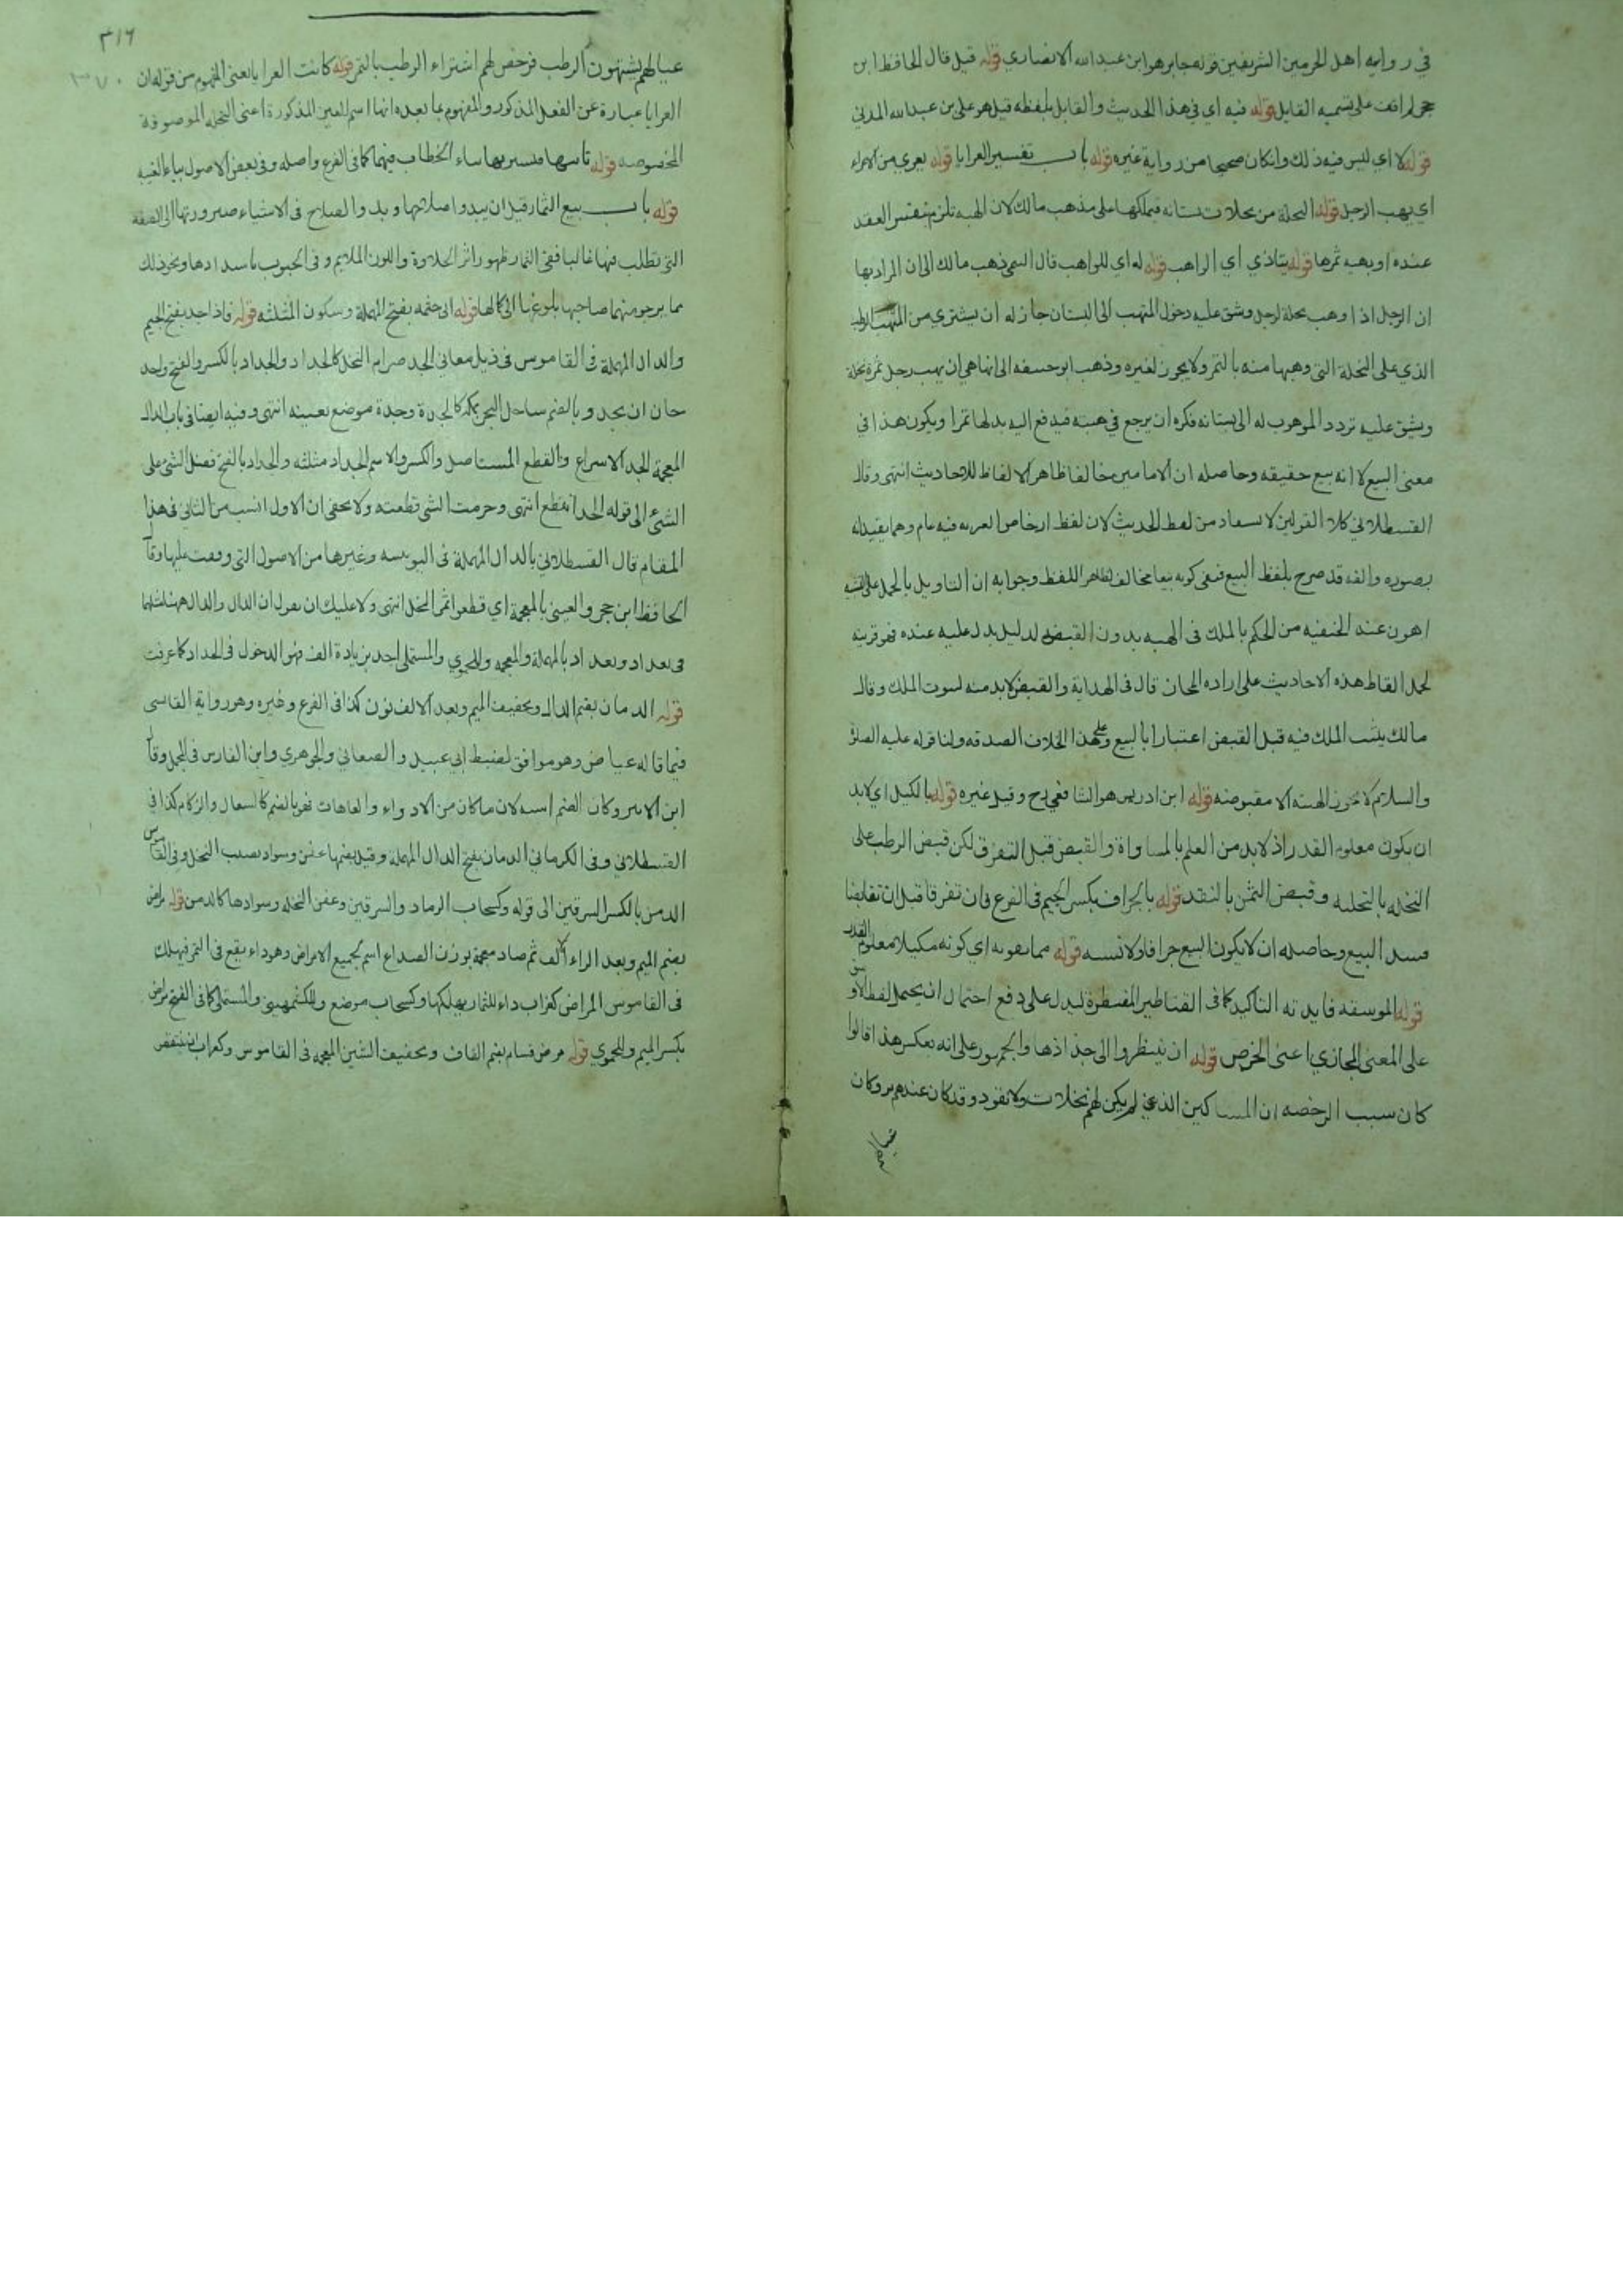 في رواية اهل الحرمين الشريفين قوله جابر هو ابن عبد الله الانصاري قوله قيل قال الحافظ ابن
حجر لم اقف على تسميه القايل قوله فيه اي في هذا الحديث والقايل بلفظه قيل هو علي بن عبد الله المدني
قوله لا اي ليس فيه ذلك وان كان صحيحا من رواية غيره قوله باب تفسير العرايا قوله يعري من الاعراء
اي يهب الرجل قوله النخلة من نخلات بستانه فيملكها على مذهب مالك لان الهبه تلزم بنفس العقد
عنده او يهبه ثمرها قوله يتاذي اي الواهب قوله له اي للواهب قال العيني ذهب مالك الى ان المراد بها
ان الرجل اذا وهب نخلة لرجل وشق عليه دخول المتهب الى البستان جاز له ان يشتري من المتهب الرطب
الذي على النخلة التي وهبها منه بالتمر ولا يجوز لغيره وذهب ابو حنيفه الى انها هي ان يهب رجل ثمرة نخلة
ويشق عليه تردد الموهوب له الى بستانه فكره ان يرجع في هبته فيدفع اليه بدلها تمرا ويكون هذا في
معنى البيع لا انه بيع حقيقه وحاصله ان الامامين خالفا ظاهر الالفاظ للاحاديث انتهى وقال
القسطلاني كلا القولين لا يستفاد من لفظ الحديث لان لفظ ارخاص العريه فيه عام وهما يقيدانه
بصوره وانه قد صرح بلفظ البيع فنفي كونه بيعا مخالف لظاهر اللفظ وجوابه ان التاويل بالحمل على
اهون عند الحنفيه من الحكم بالملك في الهبه بدون القبض لدليل يدل عليه عنده فهو قرينه
لحمل الفاظ هذه الاحاديث على اراده المجاز قال في الهداية والقبض لا بد منه لثبوت الملك وقال
مالك يثبت الملك فيه قبل القبض اعتبارا بالبيع وعلى هذا الخلاف الصدقه ولنا قوله عليه الصلوة
والسلام لا تجوز الهبه الا مقبوضه قوله ابن ادريس هو الشافعي رح وقيل غيره قوله بالكيل اي لا بد
ان يكون معلوم القدر اذ لا بد من العلم بالمساواة والقبض قبل التفرق لكن قبض الرطب على
النخله بالتخليه وقبض الثمن بالنقد قوله بالجزاف بكسر الجيم في الفرع فان تفرقا قبل ان تقابضا
فسد البيع وحاصله ان لا يكون البيع جزافا ولا نسيه قوله مما يقويه اي كونه مكيلا معلوم القدر
قوله الموسقه فايدته التاكيد كما في القناطير المقنطرة ليدل على دفع احتمال ان يحتمل لفظ الاوسق
على المعنى المجازي اعني الخرص قوله ان ينتظروا الى جذاذها والجمهور على انه بعكس هذا قالوا
كان سبب الرخصه ان المساكين الذي لم يكن لهم نخلات ولا نقود وقد كان عندهم بر وكان
عيالهم
٣١٦
٣٧٠
عيالهم يشتهون الرطب فرخص لهم اشتراء الرطب بالتمر قوله كانت العرايا يعني المفهوم من قوله ان
العرايا عبارة عن الفعل المذكور والمفهوم بما بعده انها اسم للعين المذكورة اعني النخله الموصوفة
المخصوصه قوله تاتيها فتشتريها بتاء الخطاب فيهما كما في الفرع واصله وفي بعض الاصول بياء الغيبه
قوله باب بيع الثمار قبل ان يبدو اصلاحها وبدو الصلاح في الاشياء صيرورتها الى الصفه
التي تطلب فيها غالبا ففي الثمار ظهور اثر الحلاوة واللون الملايم وفي الحبوب باسدادها ونحو ذلك
مما يرجو منهما صاحبها بلوغها الى كمالها قوله ابي حثمه بفتح المهملة وسكون المثلثه قوله فاذا جد بفتح الجيم
والدال المهملة في القاموس في ذيل معاني الجد صرام النخل كالجداد والجداد بالكسر والفتح واجد
حان ان يجد وبالضم ساحل البحر بمكه كالجدة وجدة موضع بعينه انتهى وفيه ايضا في باب الدال
المعجمة الجد الاسراع والقطع المستاصل والكسر والاسم الجداد مثلثه والجداد بالفتح فصل الشئ على
الشئ الى قوله الجد انقطع انتهى وجرمت الشئ قطعته ولا يخفى ان الاول انسب من الثاني في هذا
المقام قال القسطلاني بالدال المهملة في اليونينيه وغيرها من الاصول التي وقفت عليها وقال
الحافظ ابن حجر والعيني بالمعجمة اي قطعوا ثمر النخل انتهى ولا عليك ان تقول ان الدال والدال
في بغداد وبغداد بالمهملة والمعجمه وللحموي والمستملي اجد بزيادة الف فهو الدخول في الجداد كما عرفت
قوله الدمان بضم الدال وتخفيف الميم وبعد الالف نون كذا في الفرع وغيره وهو رواية القابسي
فيما قاله عياض وهو موافق لضبط ابي عبيد والصغاني والجوهري وابن الفارس في المجمل وقال
ابن الاثير وكان الضم اشبه لان ما كان من الادواء والعاهات فهو بالضم كالسعال والزكام كذا في
القسطلاني وفي الكرماني الدمان بفتح الدال المهملة وقيل بضمها عفن وسواد يصيب النخل وفي القاموس
الدمن بالكسر السرقين الى قوله وكسحاب الرماد والسرقين وعفن النخله وسوادها كالدمن قوله مراض
بضم الميم وبعد الراء الف ثم صاد معجمة بوزن الصداع اسم لجميع الامراض وهو داء يقع في التمر فيهلك
في القاموس المراض كغراب داء للثمار يهلكها وكسحاب موضع وللكشميهني والمستملي كما في الفتح مراض
بكسر الميم وللحموي قوله مرض قشام بضم القاف وتخفيف الشين المعجمه في القاموس وكغراب ان ينتفض